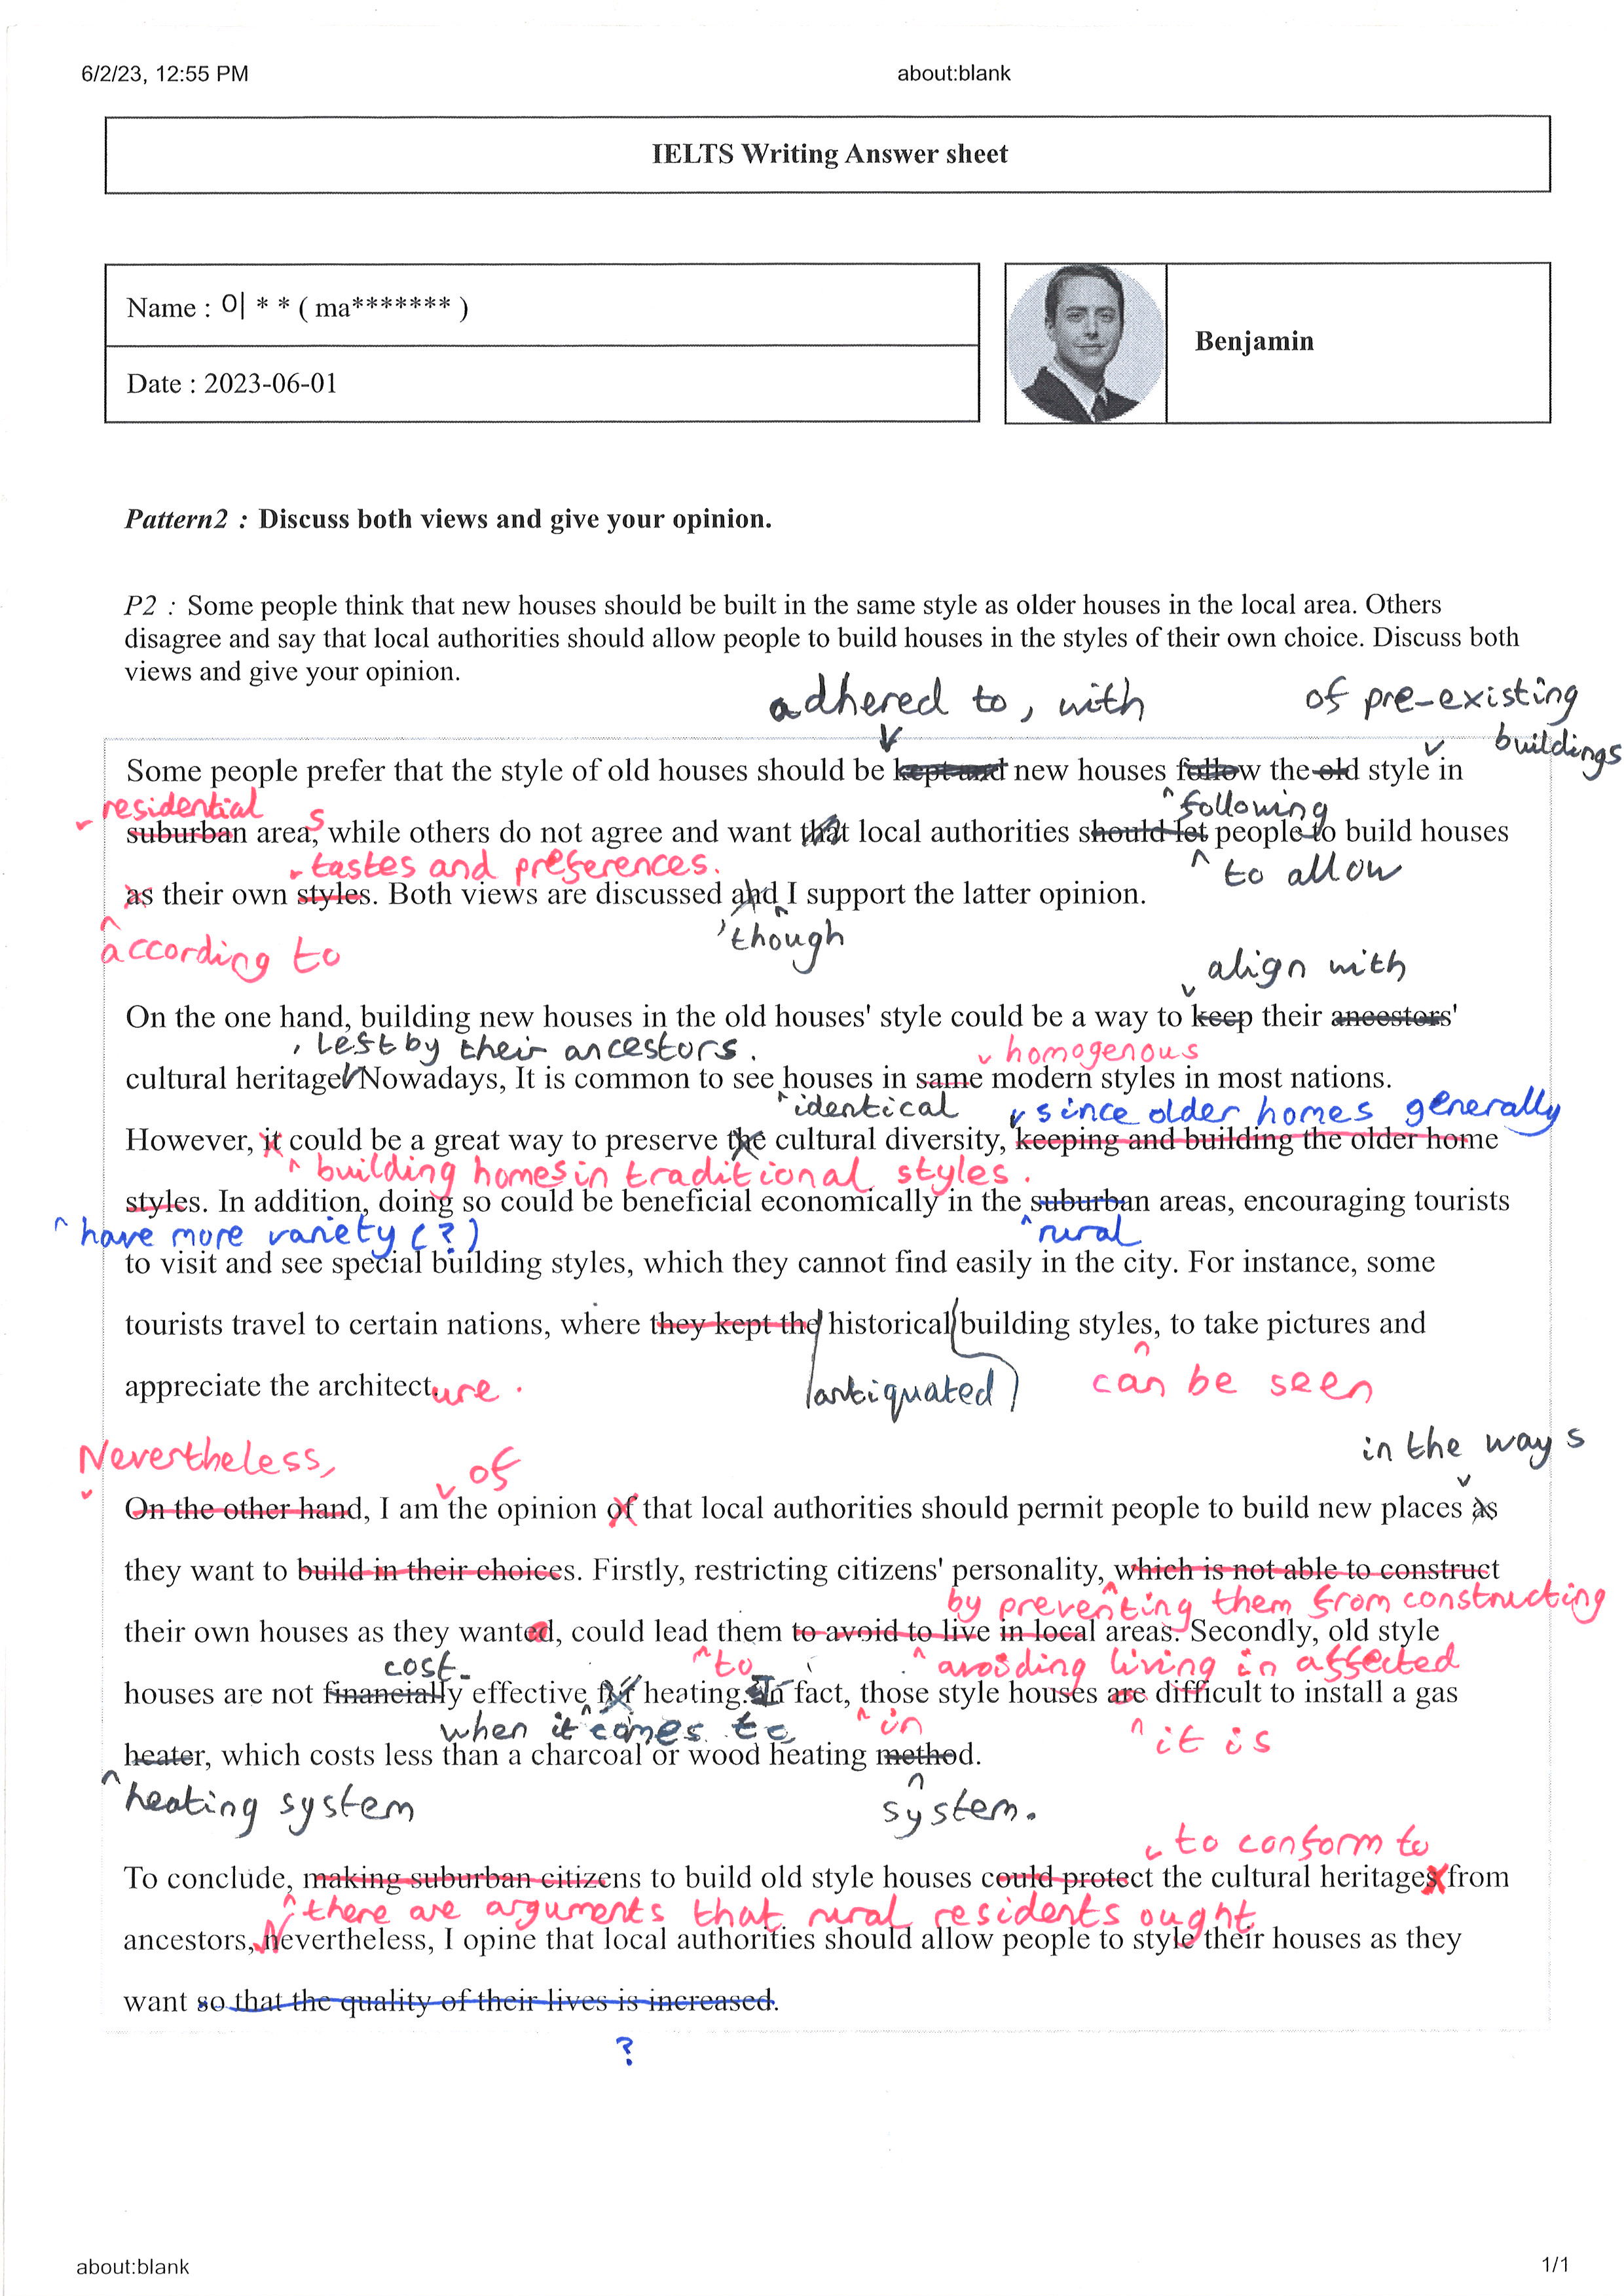 6/2/23, 12:55 PM about:blank
IELTS Writing Answer sheet
Name : 이 * * ( ma******* )
Benjamin
Date : 2023-06-01
Pattern2 : Discuss both views and give your opinion.
P2 : Some people think that new houses should be built in the same style as older houses in the local area. Others
disagree and say that local authorities should allow people to build houses in the styles of their own choice. Discuss both
views and give your opinion.
adhered to, with of pre-existing
buildings
Some people prefer that the style of old houses should be kept and new houses follow the old style in
residential following
suburban area,s while others do not agree and want that local authorities should let people to build houses
tastes and preferences. to allow
as their own styles. Both views are discussed and I support the latter opinion.
according to , though
align with
On the one hand, building new houses in the old houses' style could be a way to keep their ancestors'
, left by their ancestors. homogenous
cultural heritage. Nowadays, It is common to see houses in same modern styles in most nations.
identical since older homes generally
However, it could be a great way to preserve the cultural diversity, keeping and building the older home
building homes in traditional styles.
styles. In addition, doing so could be beneficial economically in the suburban areas, encouraging tourists
have more variety (?) rural
to visit and see special building styles, which they cannot find easily in the city. For instance, some
tourists travel to certain nations, where they kept the historical building styles, to take pictures and
appreciate the architect.ure. antiquated can be seen
Nevertheless, of in the ways
On the other hand, I am the opinion of that local authorities should permit people to build new places as
they want to build in their choices. Firstly, restricting citizens' personality, which is not able to construct
by preventing them from constructing
their own houses as they wanted, could lead them to avoid to live in local areas. Secondly, old style
cost- to avoiding living in affected
houses are not financially effective for heating. In fact, those style houses are difficult to install a gas
when it comes to in it is
heater, which costs less than a charcoal or wood heating method.
heating system system.
to conform to
To conclude, making suburban citizens to build old style houses could protect the cultural heritages from
there are arguments that rural residents ought
ancestors, Nevertheless, I opine that local authorities should allow people to style their houses as they
want so that the quality of their lives is increased.
?
about:blank 1/1